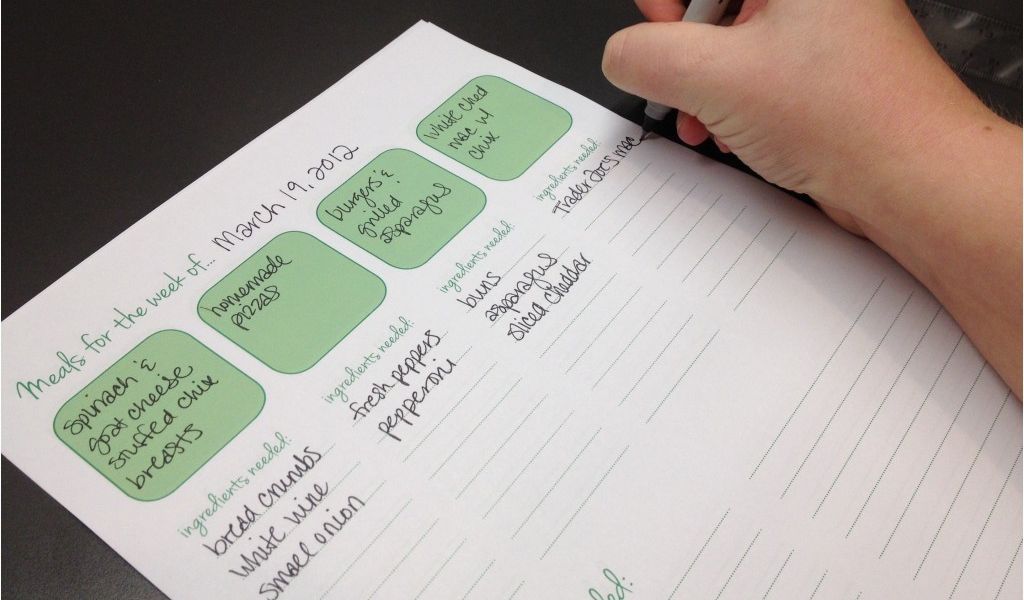 Meals for the week of... March 19, 2012
spinach &
goat cheese
stuffed chix
breasts
ingredients needed:
bread crumbs
white wine
small onion
homemade
pizzas
ingredients needed:
fresh peppers
pepperoni
burgers &
grilled
asparagus
ingredients needed:
buns
asparagus
sliced cheddar
white ched
mac w/
chix
ingredients needed:
Trader Joe's mac